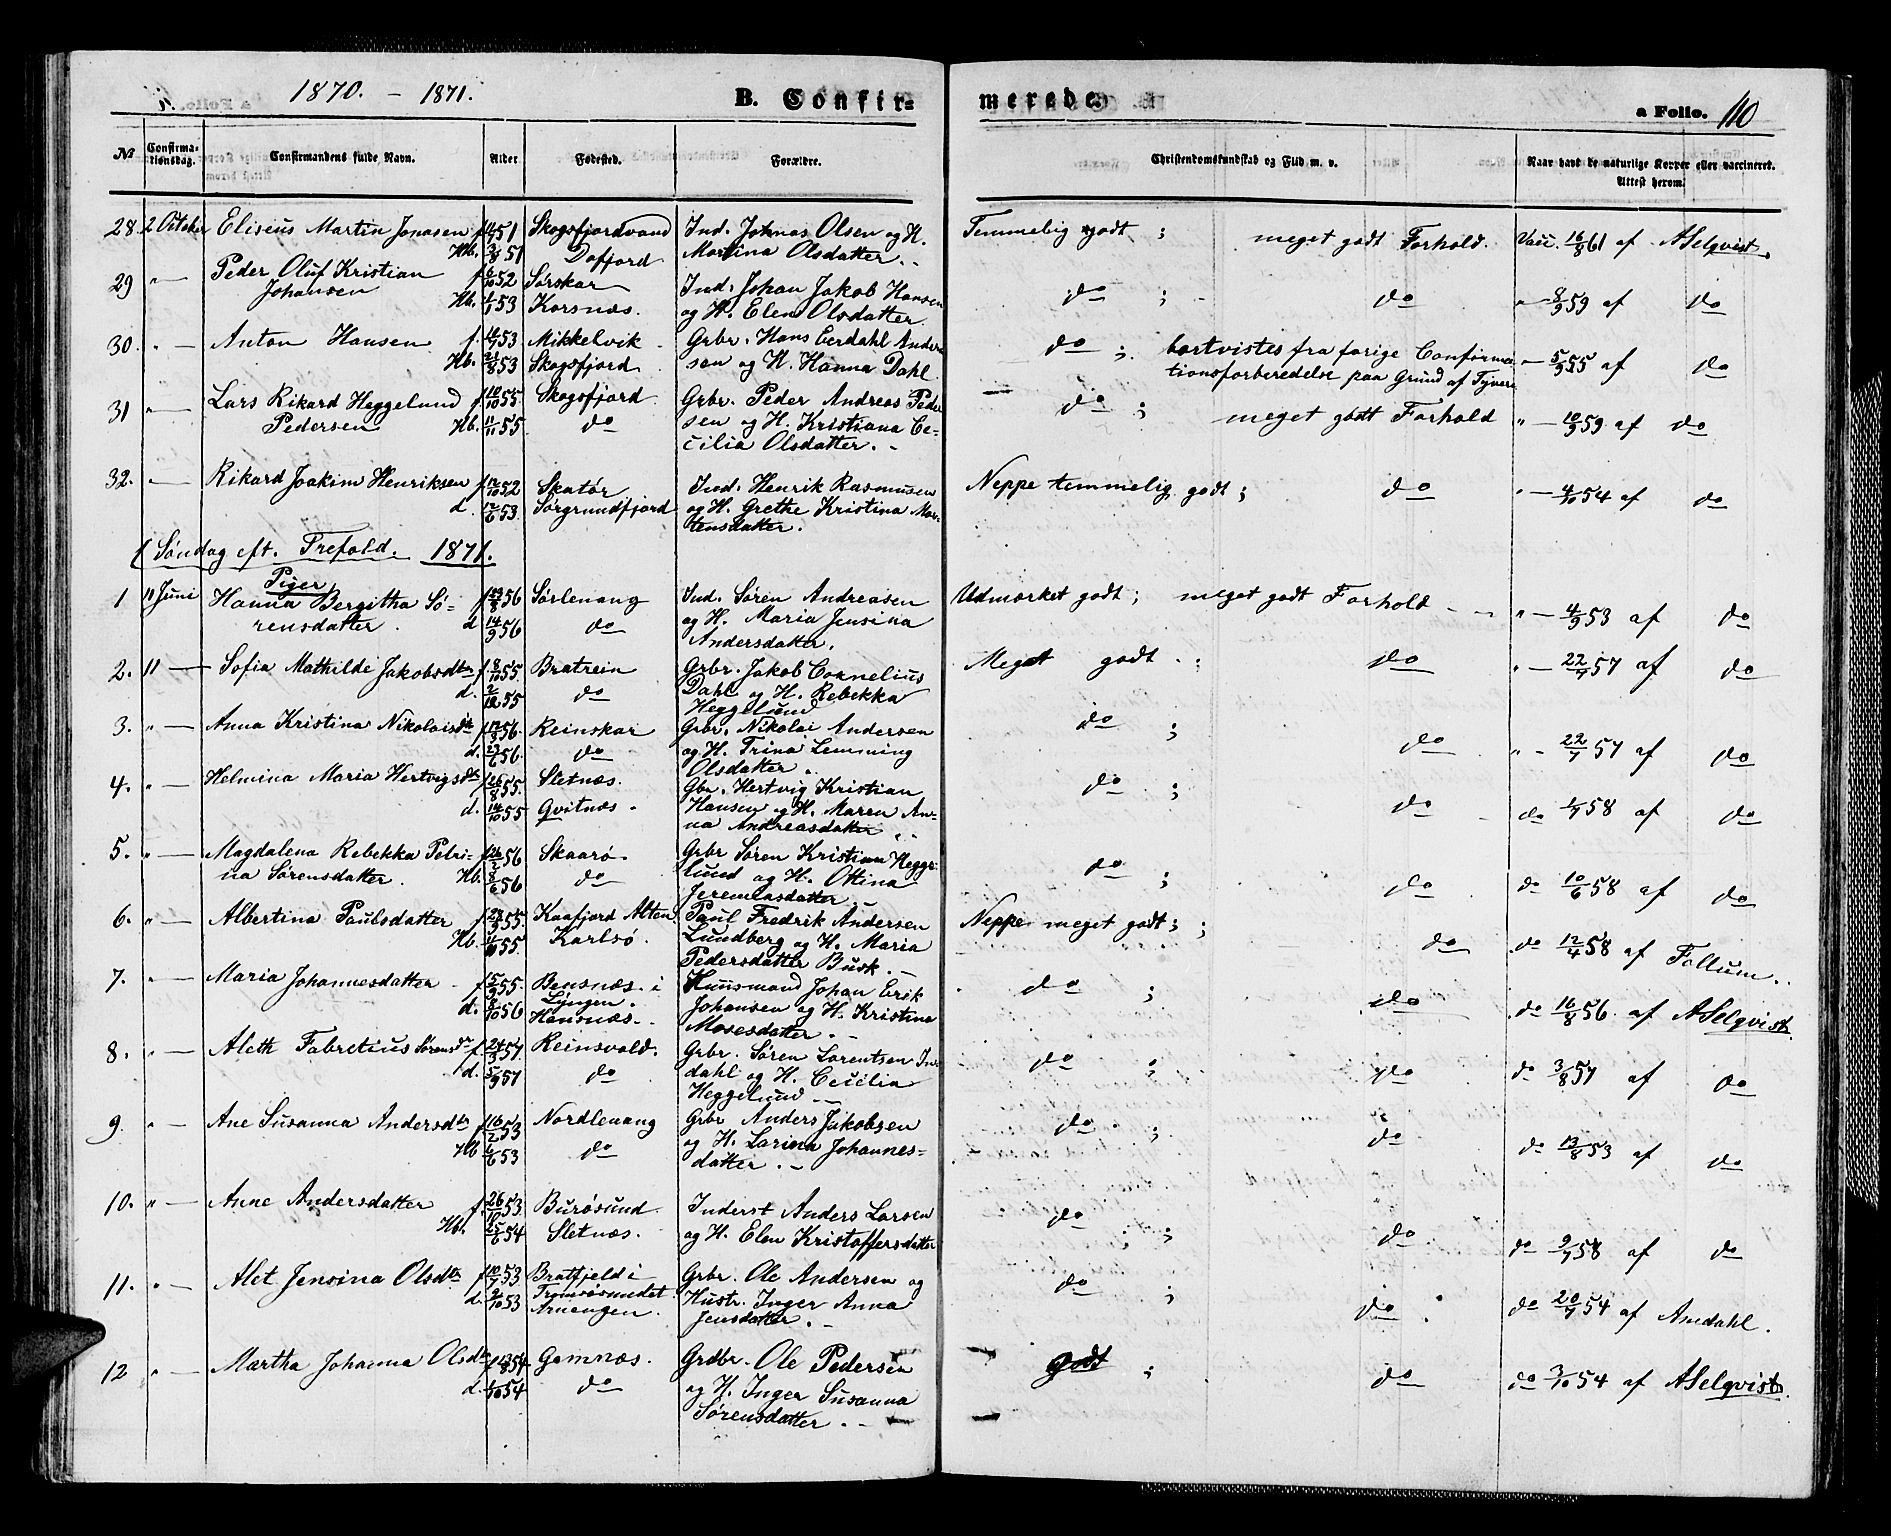 1870. - 1871.
B. Confir=
merede.
a Folio. 110
No
Confirma-
tionsdag.
Confirmandens fulde Navn.
Alder
Fødested.
Forældre.
Christendomskundskab og Flid m. v.
Naar havt de naturlige Kopper eller vaccineret.
Attest herom.
28. 2 October Eliseus Martin Jonasen f. 51 Skogsfjordvand Ind. Johnas Olsen og H. Temmelig godt ; meget godt Forhold. Vacc. 16/8 61 af ASelqvist.
Hb. 3/8 51 Dafjord Martina Olsdatter.
29 " — Peder Oluf Kristian f. 6/10 52 Sørskar Ind. Johan Jakob Hansen do ; do " — 8/9 59 af do
Johansen Hb. 1/1 53 Korsnæs. og H. Elen Olsdatter.
30. " — Anton Hansen f. 53 Mikkelvik Grbr. Hans Eerdahl Ander- do ; bortvistes fra forige Confirma- " — 5/9 55 af do
Hb. 21/8 53 Skogsfjord sen og H. Hanna Dahl. tionsforberedelse paa Grund af Tyveri
31 " — Lars Rikard Heggelund f. 10/10 55 Skogsfjord Grbr. Peder Andreas Peder- do ; meget godt Forhold " — 10/9 59 af do
Pedersen Hb. 11/11 55. do sen og H. Kristiana Ce-
cilia Olsdatter. -
32. " — Rikard Joakim Henriksen f. 12/10 52 Skatør Ind. Henrik Rasmusen Neppe temmelig godt ; do " — 4/10 54 af do
d. 12/6 53. Sørgrundfjord og H. Grethe Kristina Mor-
tensdatter.
1 Søndag eft. Trefold. 1871.
Piger
1 10 Juni Hanna Bergitha Sø- f. 23/8 56 Sørlenang Ind. Søren Andreasen Udmærket godt ; meget godt Forhold - " — 4/9 53 af do
rensdatter. d 14/9 56 do og H. Maria Jensina
Andersdatter.
2. 11 — Sofia Mathilde Jakobsdtr f. 8/10 55 Bratrein Grbr. Jakob Cornelius Meget godt ; do " — 22/7 57 af do
d. 2/12 55 do Dahl og H. Rebekka
Heggelund
3. " — Anna Kristina Nikolaisdtr f. 17/3 56. Reinskar Grbr. Nikolai Andersen do ; do " - 22/7 57 af do
d. 56. do og H. Trina Lemming
Olsdatter
4. " — Helmina Maria Hertvigsdtr f. 26/8 55. Sletnæs. Gbr. Hertvig Kristian do ; do do 58 af do
d. 14/10 55 Qvitnæs. Hansen og H. Maren An-
na Andreasdatter
5. " — Magdalena Rebekka Petri- f. 56 Skaarø. Grbr Søren Kristian Hegge- do ; do do 10/6 58 af do
na Sørensdatter. Hb. 8/6 56 do lund og H. Ottina
Jeremiasdatter.
6. " — Albertina Paulsdatter f. 55. Kaafjord Alten. Paul Fredrik Andersen Neppe meget godt ; do do 12/4 58 af Follum.
Hb. 55. Karlsø. Lundberg og H. Maria
Pedersdatter Busk. -
7. " — Maria Johannesdatter f. 15/9 55. Bensnæs i Huusmand Johan Erik do ; do do 16/8 56 af ASelqvist
d. 8/10 56 Lyngen. Johansen og H. Kristina
Hansnæs. Mosesdatter -
8. " — Aleth Fabretius Sørensdtr f. 57 Reinsvold. Grbr. Søren Lorentsen In- do ; do do 3/8 57 af do
d. 5/9 57 do dahl og H. Cecilia
Heggelund -
9. " — Ane Susanna Andersdtr f. 16/2 53 Nordlenang Grbr Anders Jakobsen do ; do do 13/8 53 af do
Hb 6/6 53 do og H. Larina Johannes-
datter. -
10. " — Anne Andersdatter f. 26/10 53 Burøsund. Inderst Anders Larsen do ; do do 9/7 58 af do
Hb. 25/6 54 Sletnæs. og H. Elen Kristoffersdatter
11. " — Alet Jensina Olsdtr f. 10/7 53 Bratfjeld i Grbr. Ole Andersen og do ; do do 20/7 54 af Amdahl.
d. 2/10 53 Tromsøsundet Hustr. Inger Anna
Arnengen. Jensdatter. -
12 " — Martha Johanna Olsdtr f. 54 Gamnæs. Grdbr. Ole Pedersen godt ; do do 3/10 54 af ASelqvist.
d. 1/10 54 do og H. Inger Susanna
Sørensdatter. -